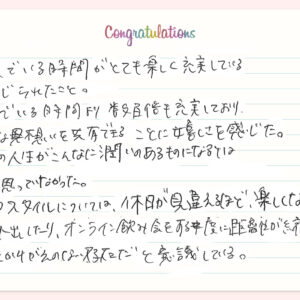 Congratulations
でいる時間がとても楽しく充実している
じられたこと。
でいる時間より数百倍も充実しており、
な異想いを共有できることに嬉しさを感じた。
の人生がこんなに潤いのあるものになるとは
思っていなかった。
フスタイルについては、休日が見違えるほど、楽しくな
出したり、オンライン飲み会をする度に距離が縮
かけがえのない存在だと意識している。